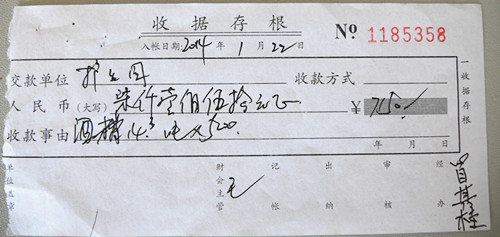 收据存根
入帐日期2014年1月22日 № 1185358
交款单位 收款方式
人民币(大写)柒仟壹佰伍拾元正 ¥7150/
收款事由 酒糟14.3吨×500.
年 月 日
收据存根
单位盖章 财会主管 记帐 出纳 审核 经办